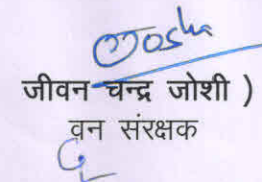 जीवन चन्द्र जोशी )
वन संरक्षक